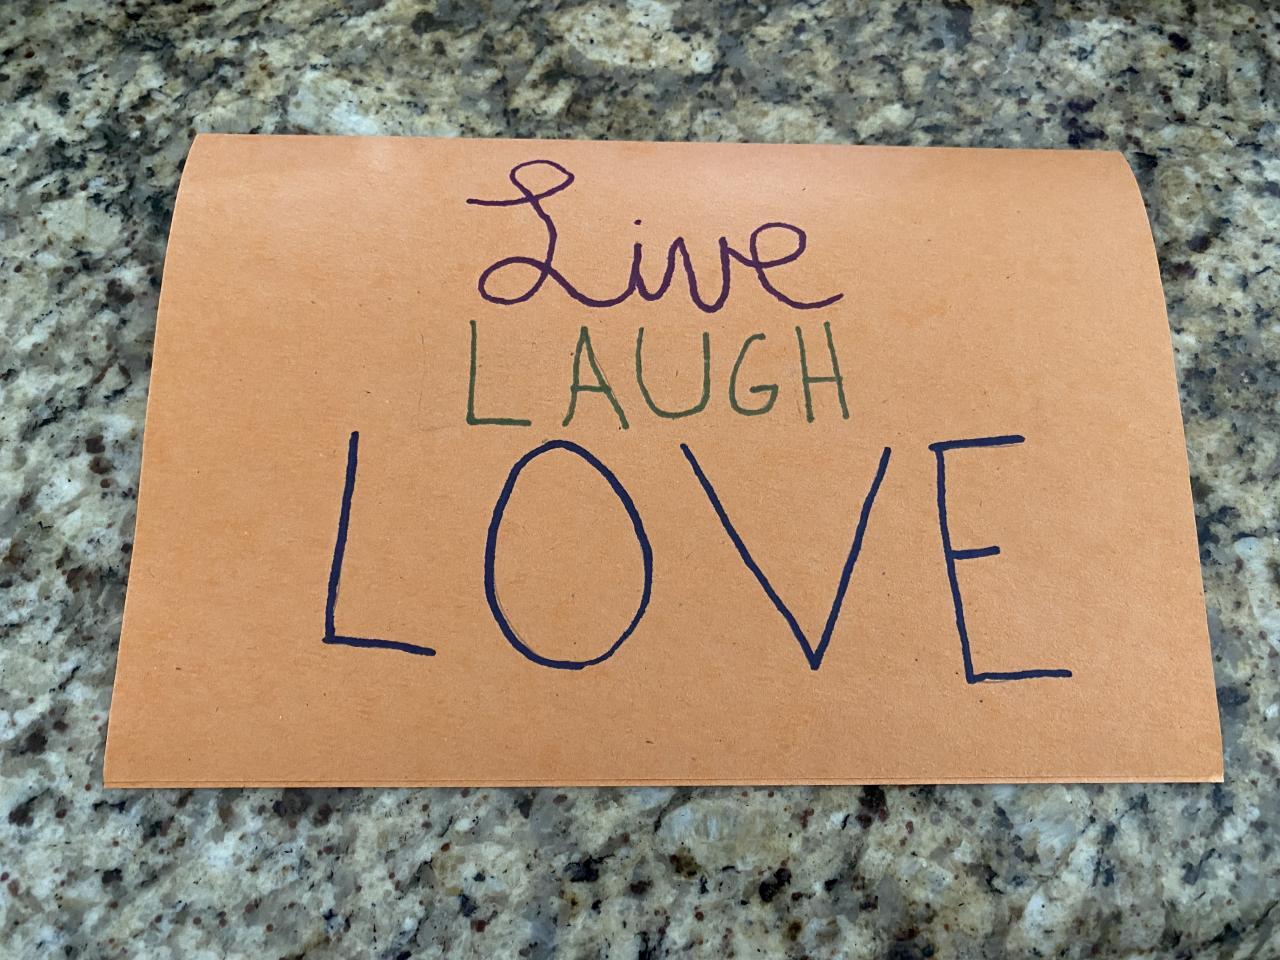 Live
LAUGH
LOVE